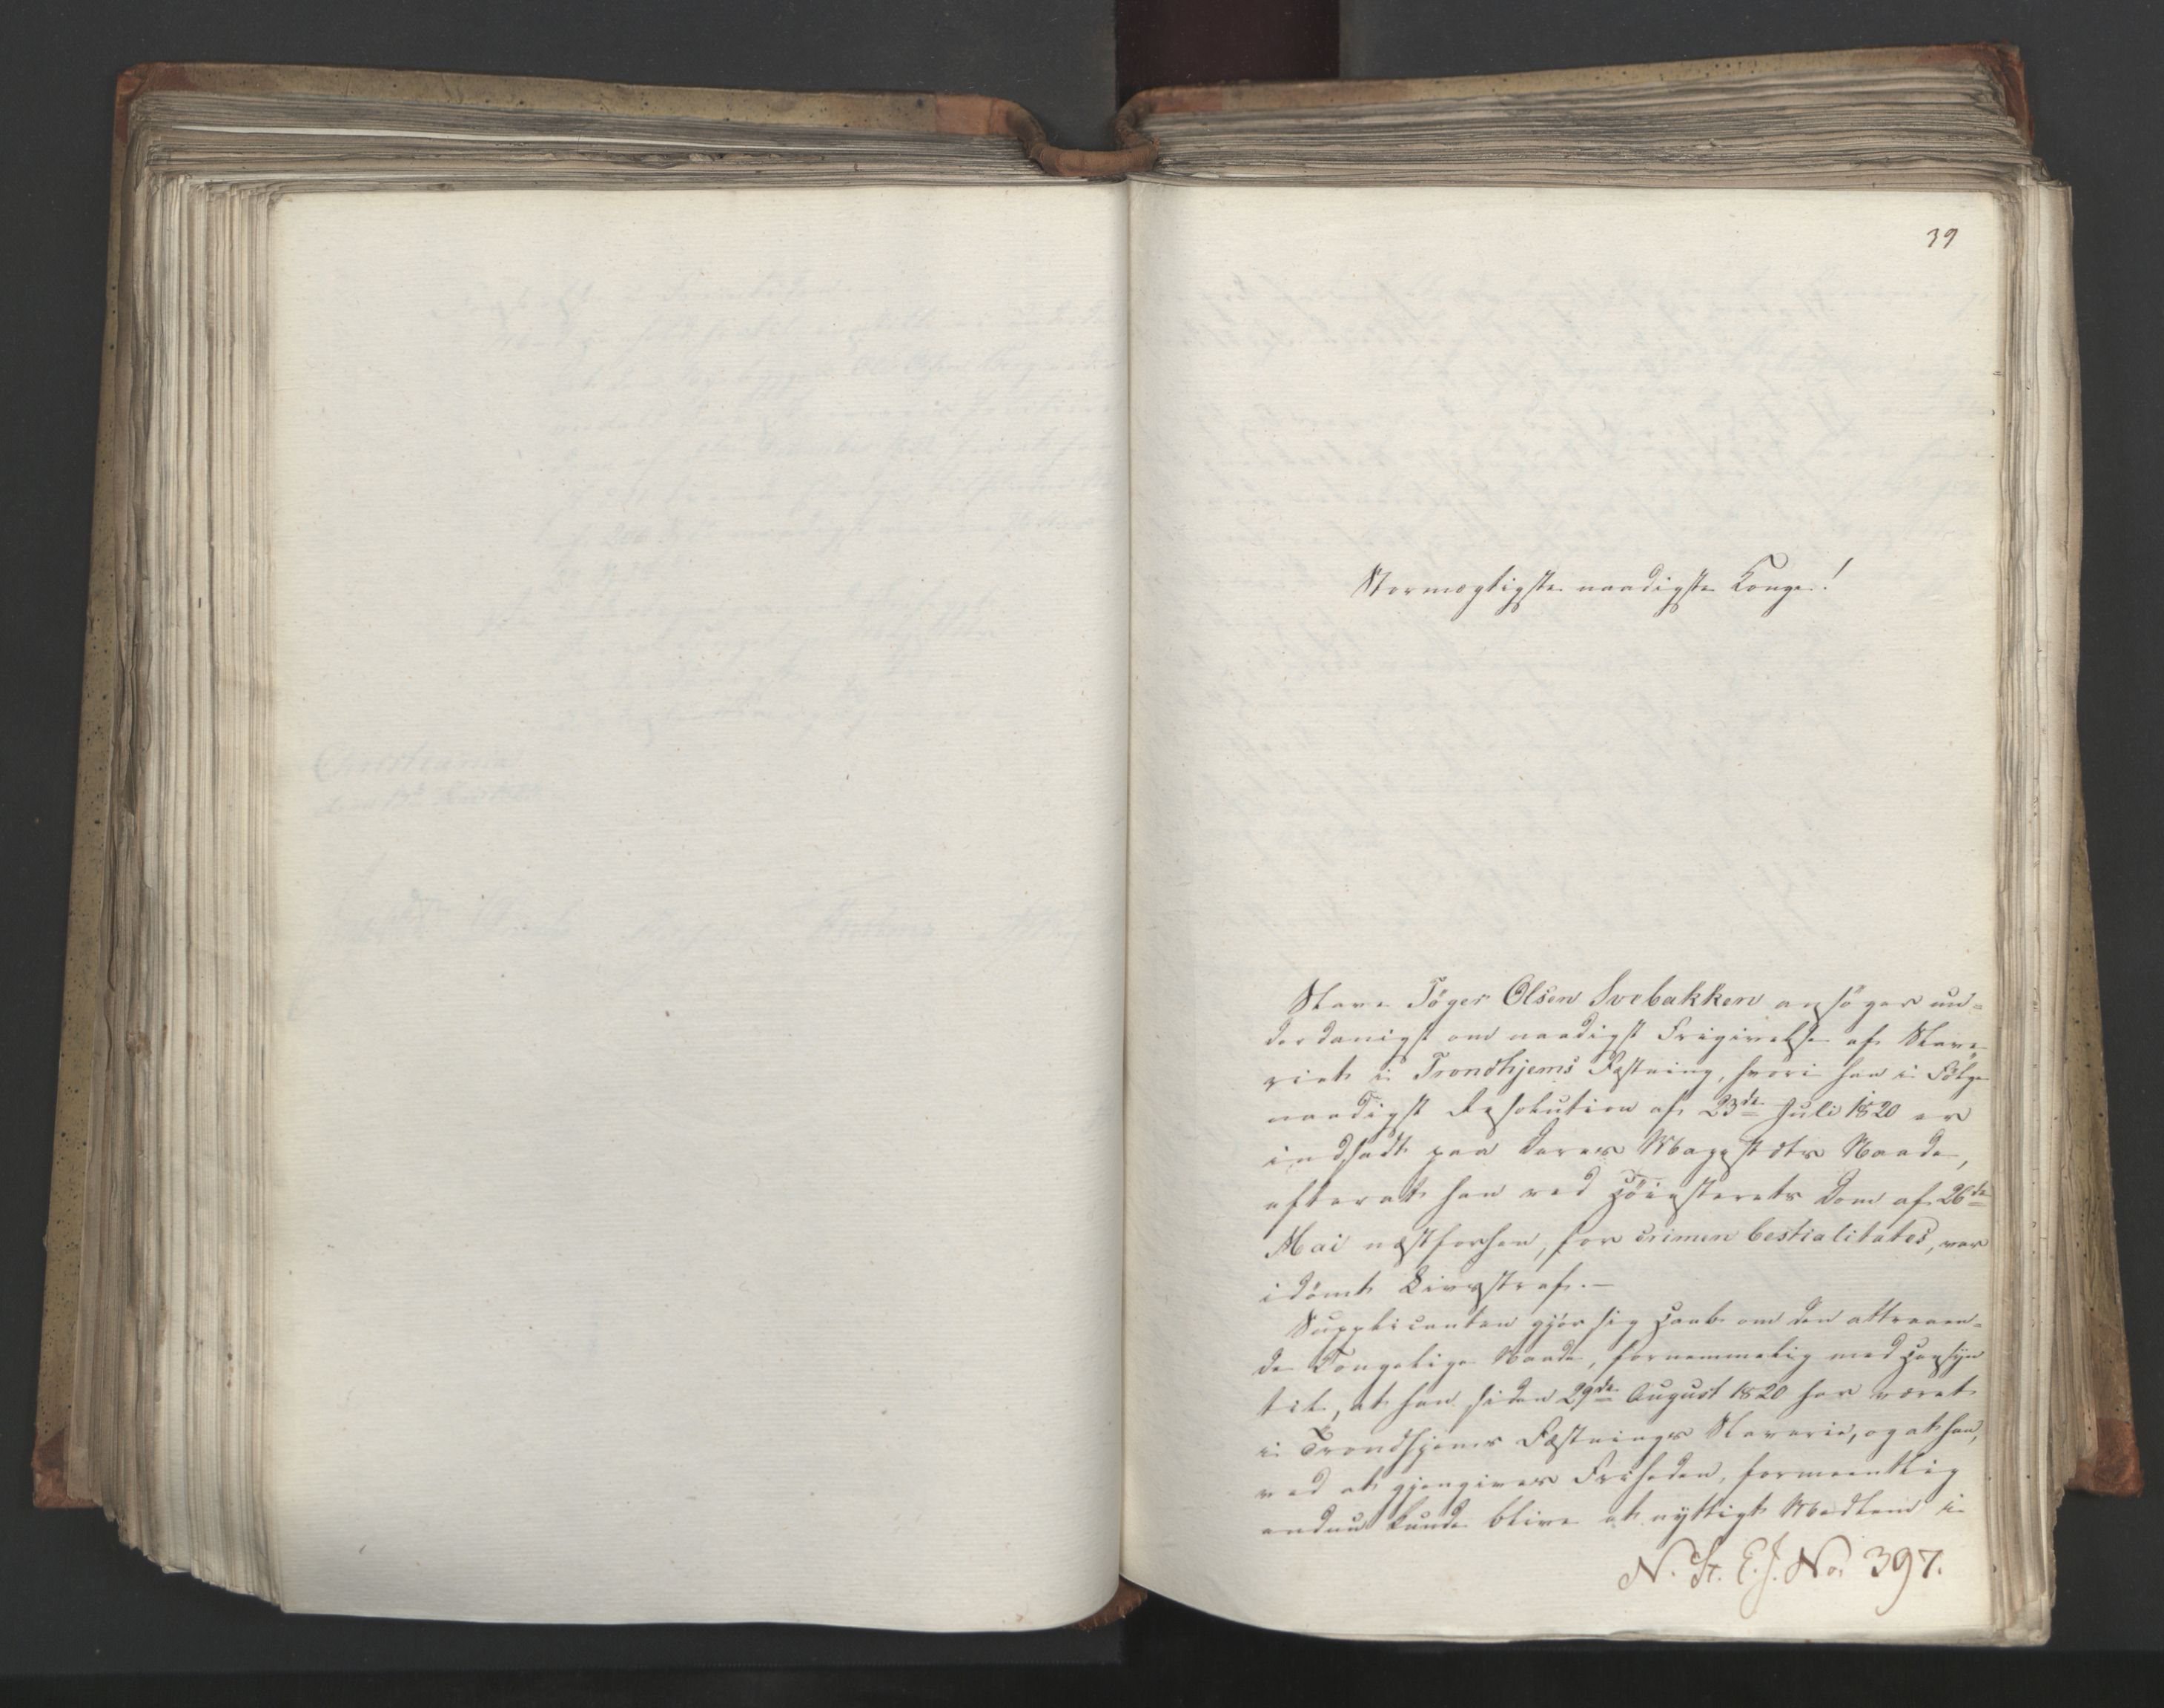 39
Stormægtigste naadigste Konge!
Slave Töger Olsen Svebakken ansöger un-
derdanigst om naadigst Frigivelse af Slave-
riet i Trondhjems Fæstning, hvori han i Fölge
naadigst Resolution af 23de Juli 1820 er
indsadt paa Deres Majestæts Naade,
efterat han ved Höiesterets Dom af 26de
Mai næstforhen, for crimen bestialitates, var
idömt Livsstraf.-
Supplicanten gjör sig Haab om den attraaen-
de Kongelige Naade, fornemmelig med Hensyn
til, at han siden 29de August 1820 har været
i Trondhjems Fæstnings Slaverie, og at han,
ved at gjengives Friheden, formeentlig
endnu kunde blive et nyttigt Medlem i
N. St. E. J. No. 397.